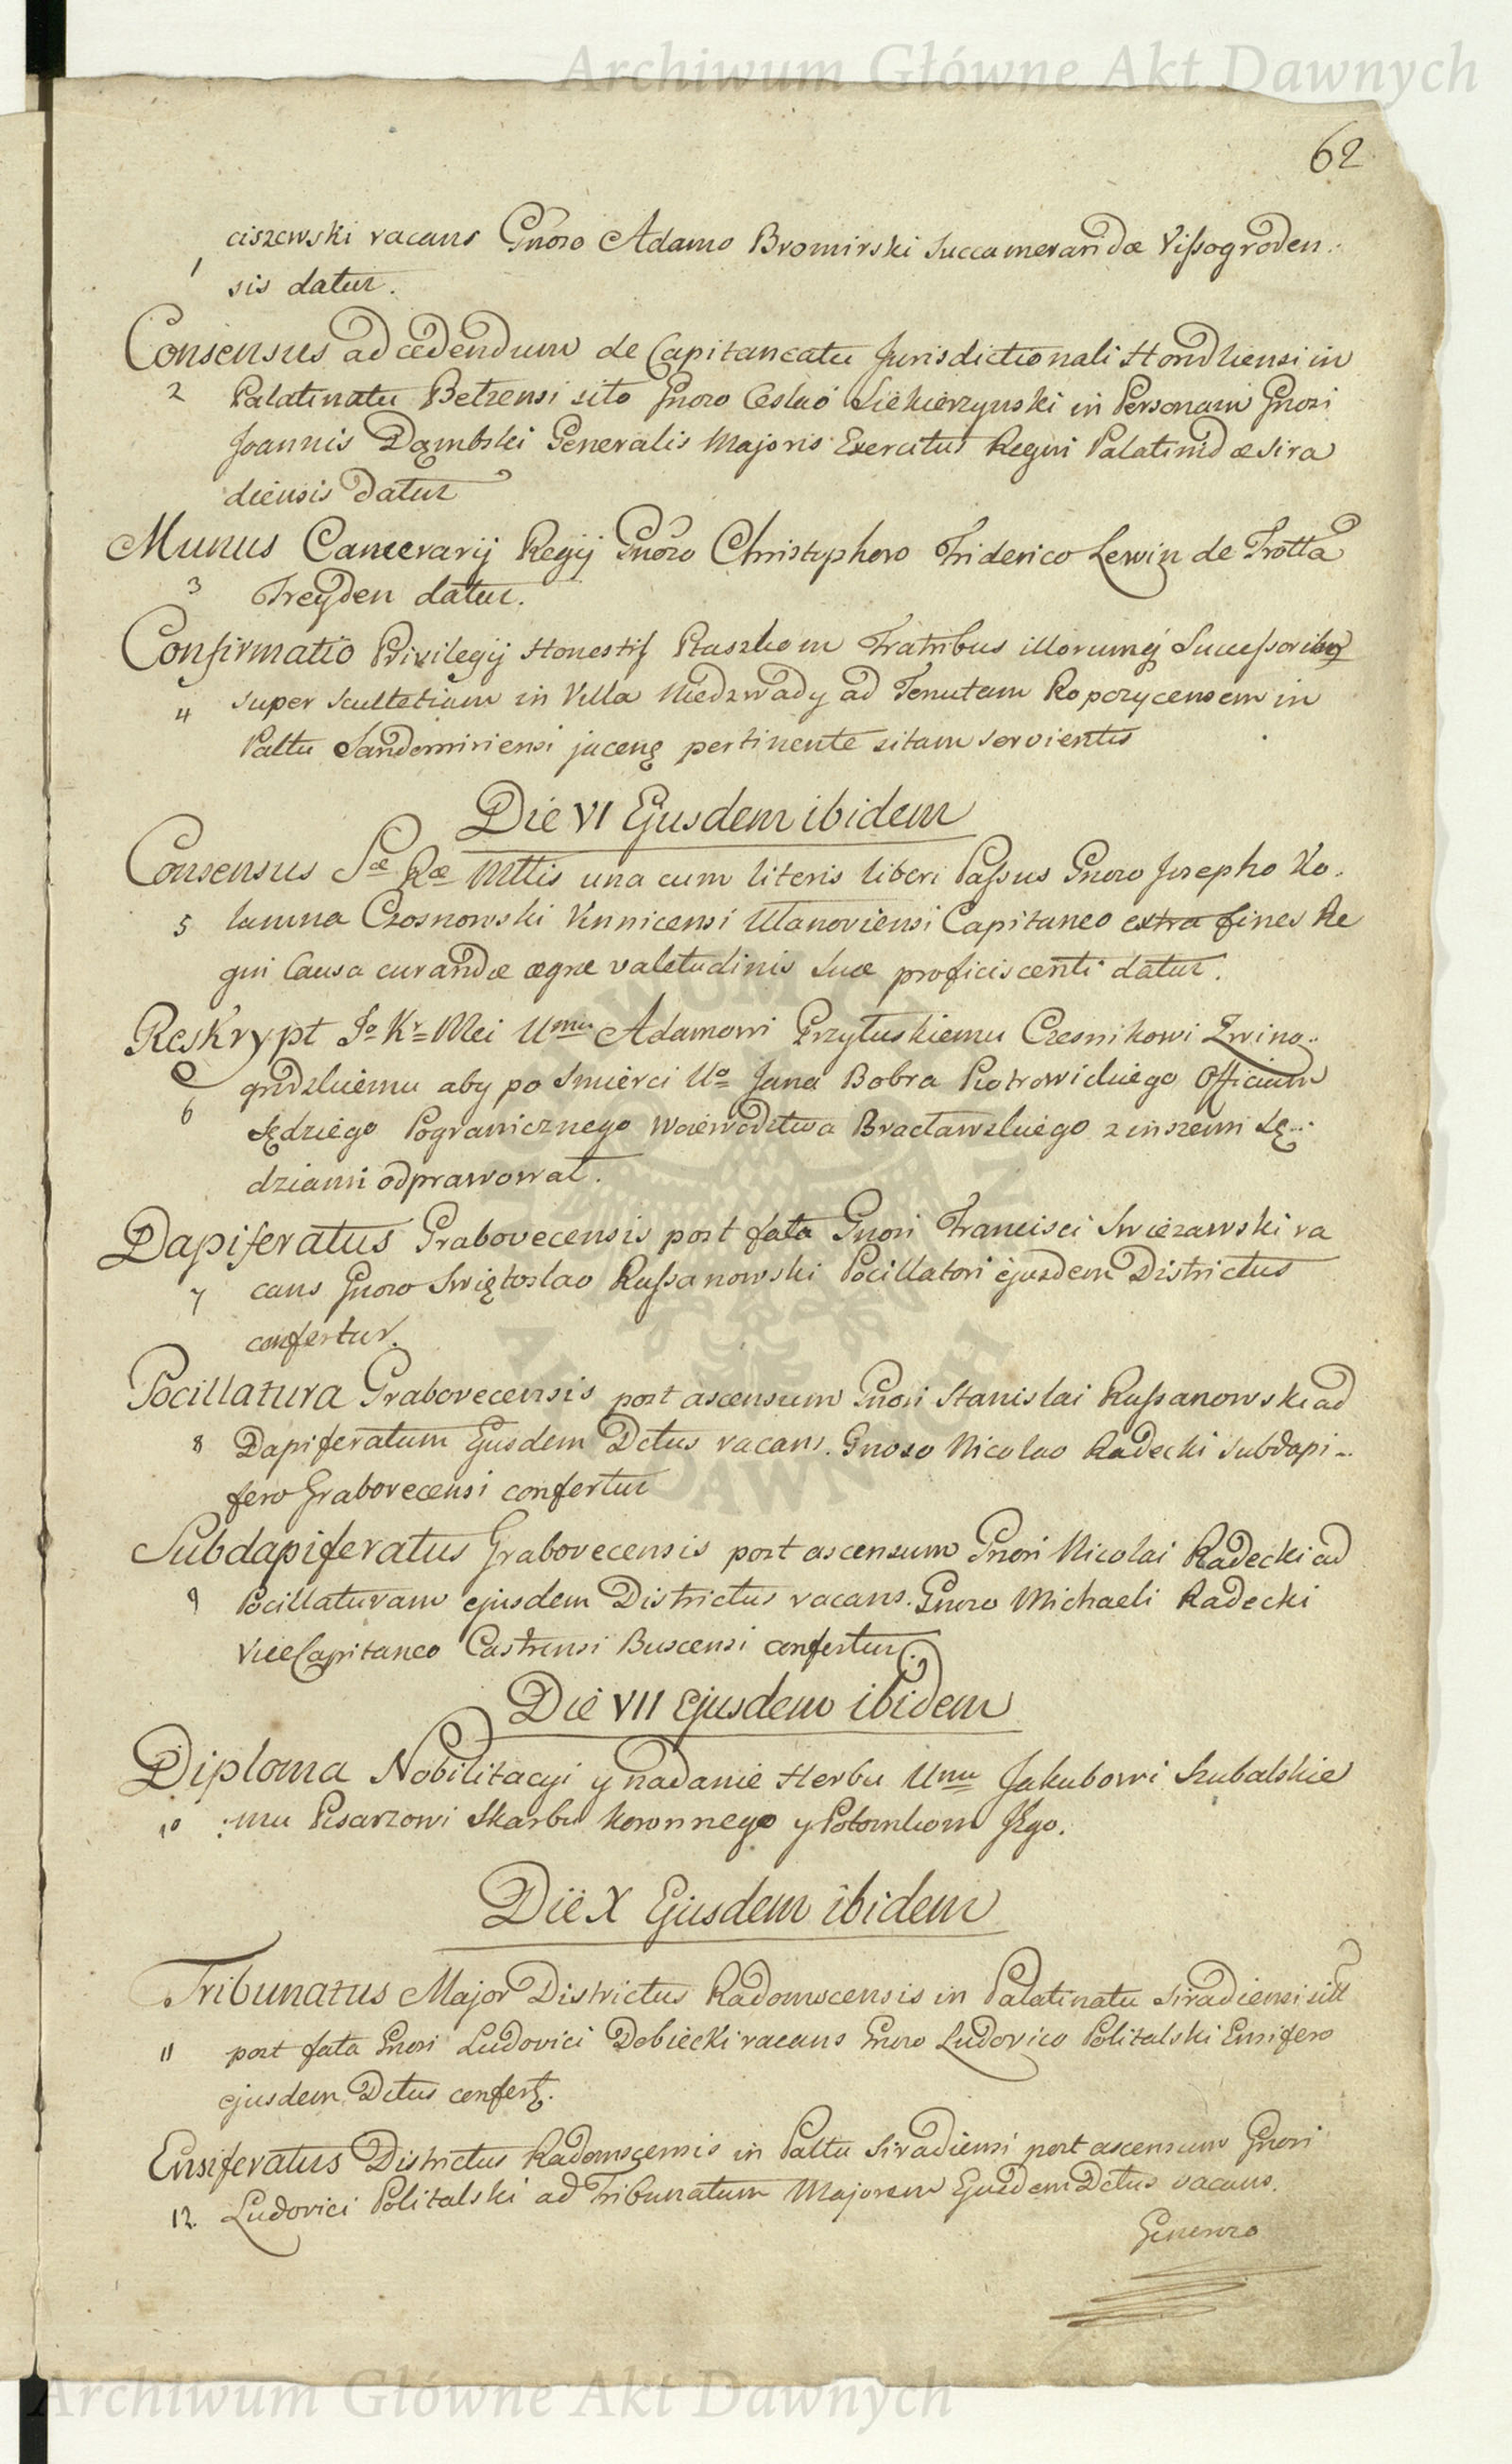 Archiwum Główne Akt Dawnych
62
ciszewski vacans Gnoso Adamo Bromirski Succameraridæ Vissogroden:
1 sis datur.
Consensus ad cedendum de Capitaneatu Jurisdictionali Horodliensi in
2 Palatinatu Belzensi sito Gnoso Ceslao Siekierzynski in Personam Gnosi
Joannis Dąmbski Generalis Majoris Exercitus Regni Palatinidæ Sira
diensis datur
Munus Camerarij Regij Gnoso Christophoro Friderico Lewin de Trotta
3 Treyden datur.
Confirmatio Privilegij Honestis Ptaszkom Fratribus illorumq Successoribus
4 super Scultetiam in Villa Niedzwady ad Tenutam Ropczycensem in
Paltu Sandomiriensi jacenę pertinente sitam servientis
Die VI Ejusdem ibidem
Consensus Sæ Ræ Mttis una cum literis liberi Passus Gnoso Josepho Ko.
5 lumna Czosnowski Vinnicensi Ulanoviensi Capitaneo extra fines Re
gni Causa curandæ ægræ valetudinis suæ proficiscenti datur.
Reskrypt Jo Kr Mci Umu Adamowi Przyłuskiemu Czesnikowi Zwino..
6 grodzkiemu aby po smierci Uo Jana Bobra Piotrowickiego Officium
Sędziego Pogranicznego Woiewodztwa Bracławskiego z inszemi Sę..
dziami odprawował.
Dapiferatus Grabovecensis post fata Gnosi Francisci Swiezawski va
7 cans Gnoso Swiętoslao Russanowski Pocillatori ejusdem Districtus
confertur.
Pocillatura Grabovecensis post ascensum Gnosi Stanislai Russanowski ad
8 Dapiferatum Ejusdem Dctus vacans. Gnoso Nicolao Radecki Subdapi..
fero Grabovecensi confertur
Subdapiferatus Grabovecensis post ascensum Gnosi Nicolai Radecki ad
9 Pocillaturam ejusdem Districtus vacans. Gnoso Michaeli Radecki
ViceCapitaneo Castrensi Buscensi confertur.
Die VII ejusdem ibidem
Diploma Nobilitacyi y nadanie Herbu Umu Jakubowi Szubalskie
10 :mu Pisarzowi Skarbu Koronnego y Potomkom Jego.
Die X Ejusdem ibidem
Tribunatus Major Districtus Radomscensis in Palatinatu Siradiensi
11 post fata Gnosi Ludovici Dobiecki vacans Gnoso Ludovico Politalski Ensifero
ejusdem Dctus confert.
Ensiferatus Districtus Radomscensis in Paltu Siradiensi post ascensum Gnosi
12. Ludovici Politalski ad Tribunatum Majorem Ejusdem Dctus vacans.
Generoso
Archiwum Główne Akt Dawnych